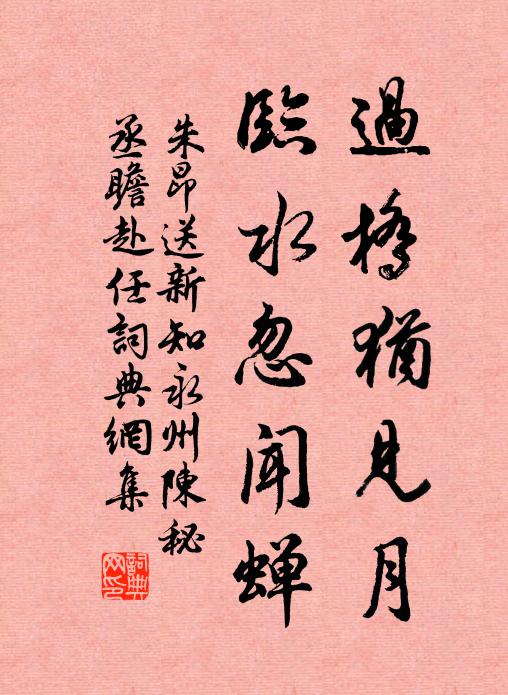 過橋猶見月
臨水忽聞蝉
朱昂送新知永州陳秘
丞瞻赴任詞典網集
詞典
网印